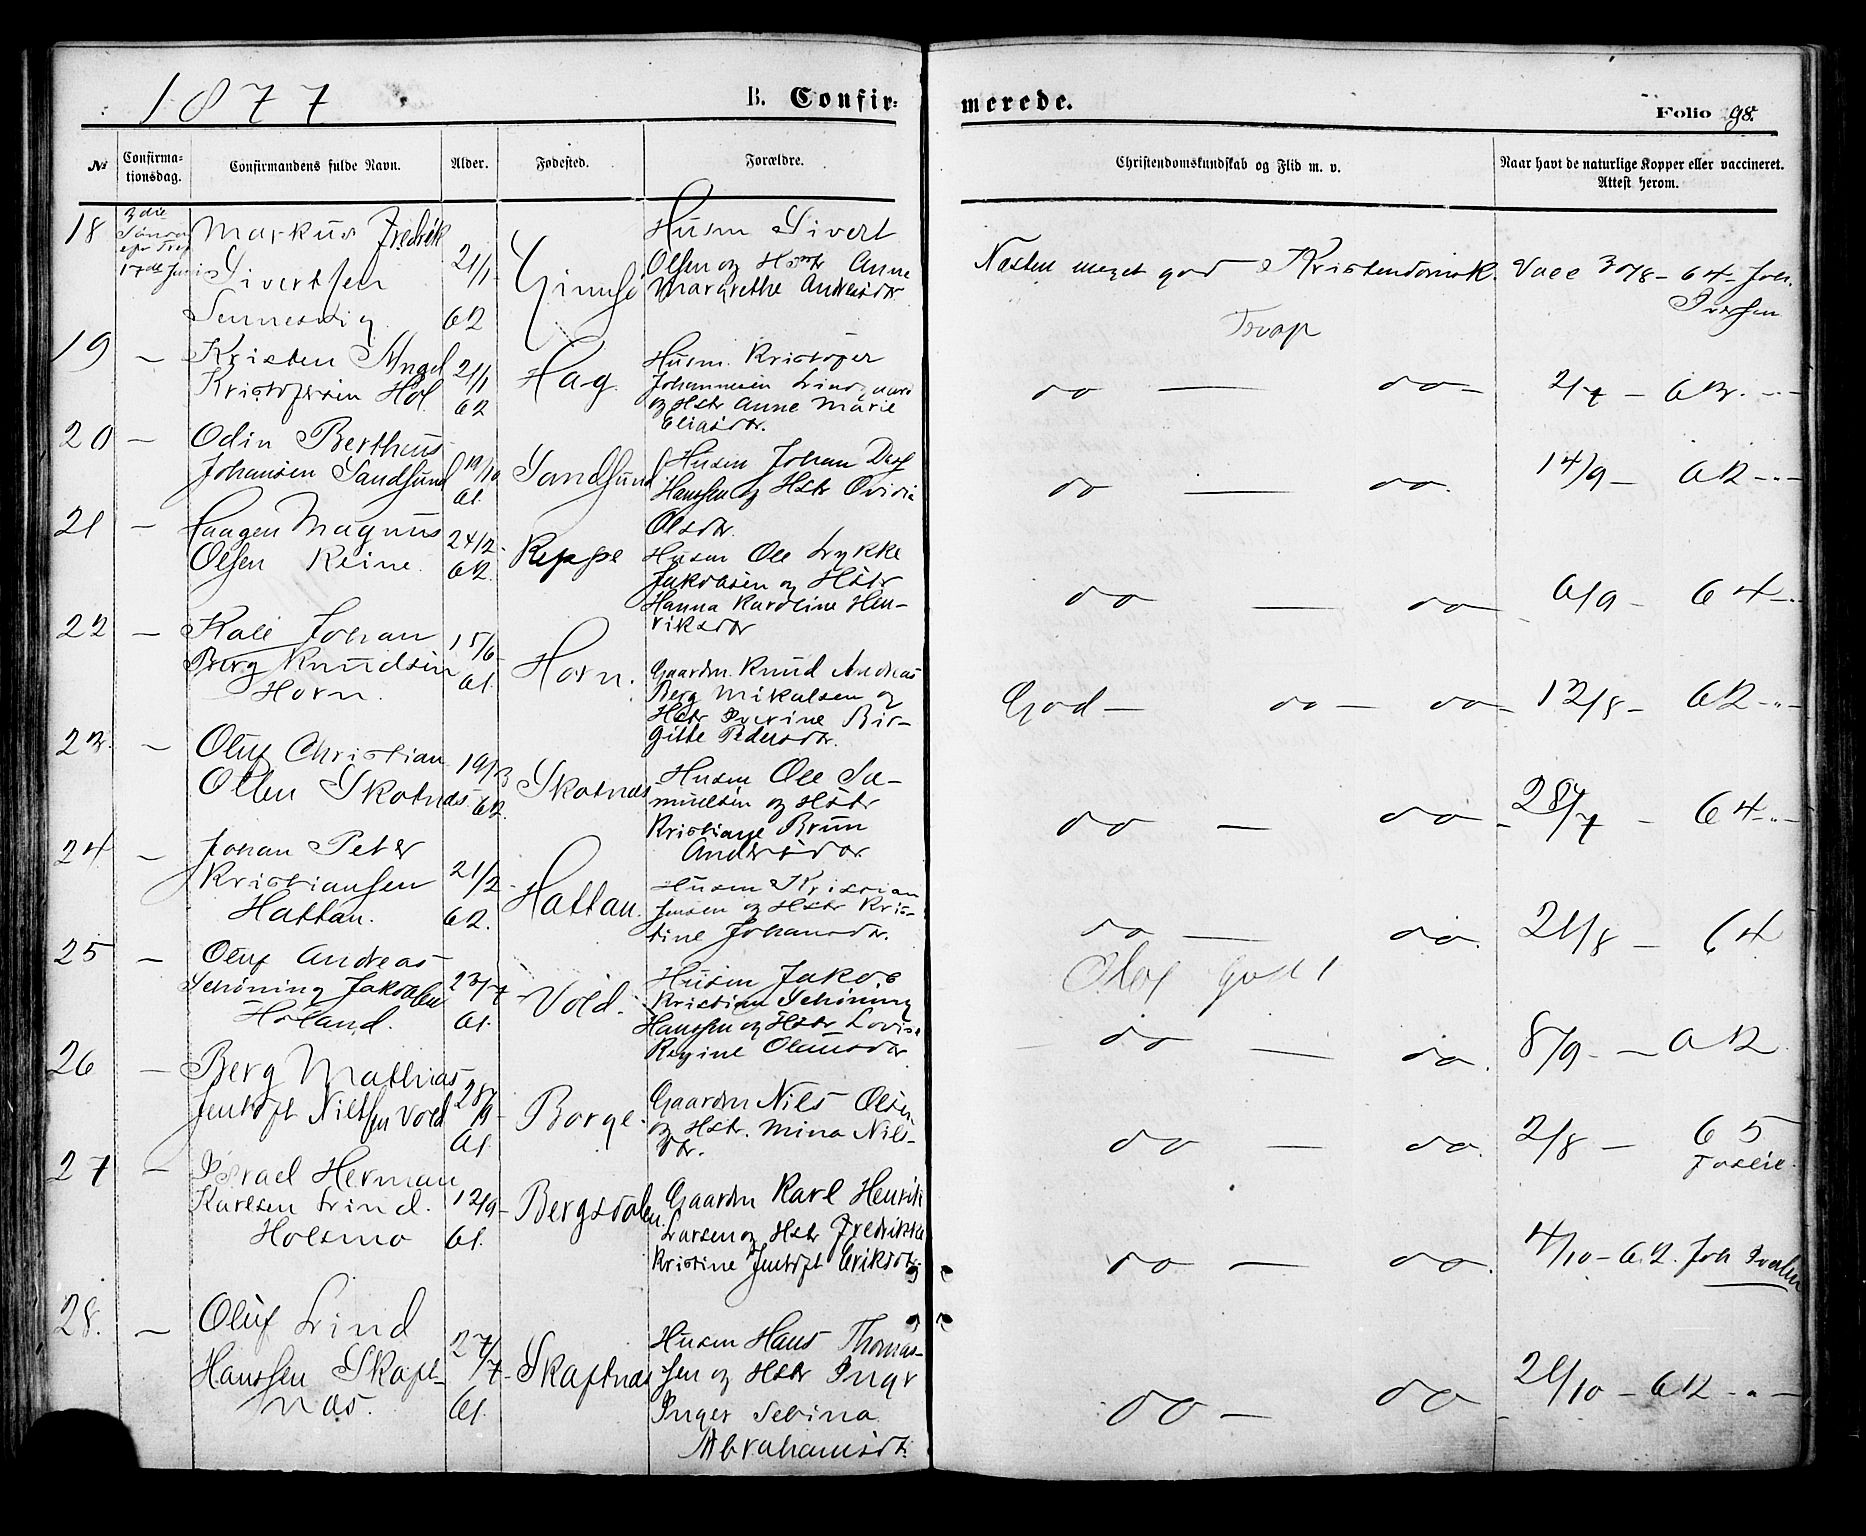 1877
B. Confir-
merede.
Folio 98.
№
Confirma-
tionsdag.
Confirmandens fulde Navn.
Alder.
Fødested.
Forældre.
Christendomskundskab og Flid m. v.
Naar havt de naturlige Kopper eller vaccineret.
Attest herom.
18
3die
Søndag
17de Juni
Markus Fredrik
Sivertsen
Sennesvig
21/1
62
Gimsø
Husm Sivert
Olsen og Hstr Anne
Margrethe Andreasdr
Næsten meget god Kristendomsk.
Vacc 30/8 - 64 Joh.
Iversen
19
—
Kristen Angel
Kristofersen Hol
21/1
62
Hag
Husm. Kristofer
Johannesen Lindgaard
og Hstr Anne Marie
Eliasdr.
do — do —
2/7 — 63. -"-
20
—
Odin Bertheus
Johansen Sandsund
19/10
61.
Sandsund
Husm Johan
Hanssen og Hstr Ovidia
Olsdr.
do — do.
14/9 — 62 -"-
21
—
Haagen Magnus
Olsen Reine
24/2
62.
Reppe
Husm Ole Lykke
Jakobsen og Hstr
Hanna Karoline Hen-
riksdr
do — do —
6/9 — 64 -"-
22
—
Kale Johan
Berg Knudsen
Horn.
15/6
61.
Horn.
Gaardm. Knud Andreas
Berg Mikalsen og
Hstr Iverine Bir-
gitte Pedersdr.
God — do — do —
12/8 — 62 -"-
23.
—
Oluf Christian
Olsen Skotnæs
19/3
62.
Skotnæs
Husm Ole Sa-
muelsen og Hstr
Kristiane Brun
Andersdr.
do — do —
28/7 — 64 -"-
24
—
Johan Peter
Kristiansen
Hattan.
21/2
62.
Hattan.
Husm Kristian
Jensen og Hstr Kris-
tine Johansdr.
do — do.
21/8 — 64
25
—
Oluf Andreas
Schøning Jakobsen
Holand.
23/7
61.
Vold.
Husm Jakob
Kristian Schøning
Hanssen og Hstr Lovise
Regine Olausdr
do — do.
8/9 — 62
26
—
Berg Mathias
Jentoft Nilssen Vold
28/9
61.
Borge.
Gaardm Nils Olsen
og Hstr. Mina Nils-
dtr.
do — do.
2/8 — 65
27
—
Israel Herman
Karlsen Lind.
Holsmo
12/9
61.
Bergsdalen.
Gaardm Karl Henrik
Larsen og Hstr Fredrikke
Kristine Jentoft Eriksdtr
do — do.
4/10 - 62. Joh Iversen
28.
—
Oluf Lind
Hanssen Skaft-
næs.
27/7
61.
Skaftnæs
Husm Hans Thomas-
sen og Hstr Inger
Inger Sebina
Abrahamsdt.
do — do —
21/10 — 62 -"-